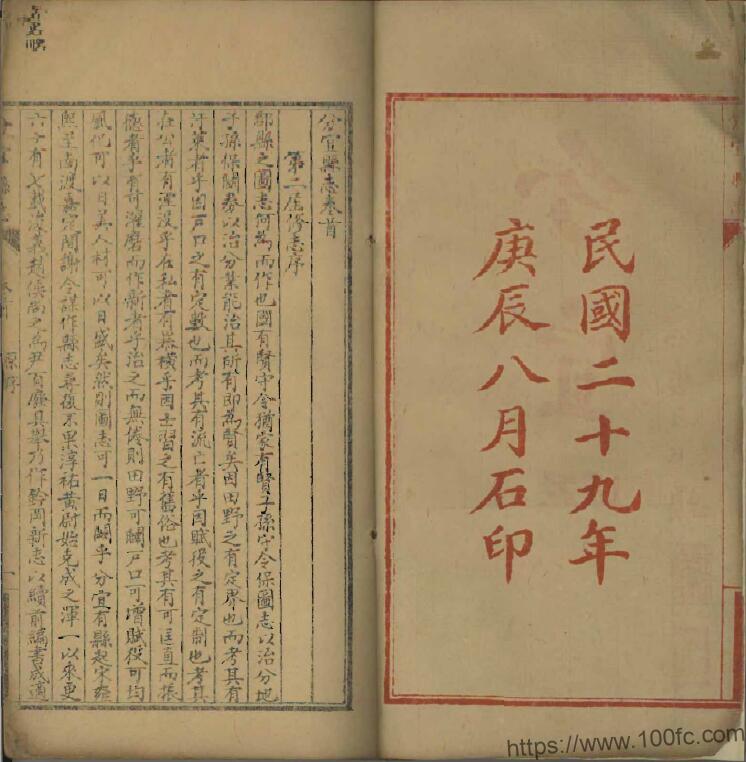 民國二十九年
庚辰八月石印
分宜縣志卷首
第二屆修志序
郡縣之圖志何為而作也國有賢守令猶家有賢子孫守令保圖志以治分地
子孫保關券以治分業能治其所有即為賢矣因田野之有定界也而考其有
汙萊者乎因戶口之有定數也而考其有流亡者乎因賦役之有定制也考其
在公者有湮没乎在私者有暴橫乎因士習之有舊俗也考其有可匡直而振
德者乎有可濯磨而作新者乎治之而無倦則田野可闢戶口可增賦役可均
風化可以日美人材可以日盛矣然則圖志可一日而闕乎分宜有縣起宋雍
熙至南渡嘉定間謝令謀作縣志尋復不果淳祐黄尉始克成之渾一以來更
六十有七載浚義趙侯尚之為尹百廢具舉乃作鈐岡新志以續前編書成適
https://www.100fc.com